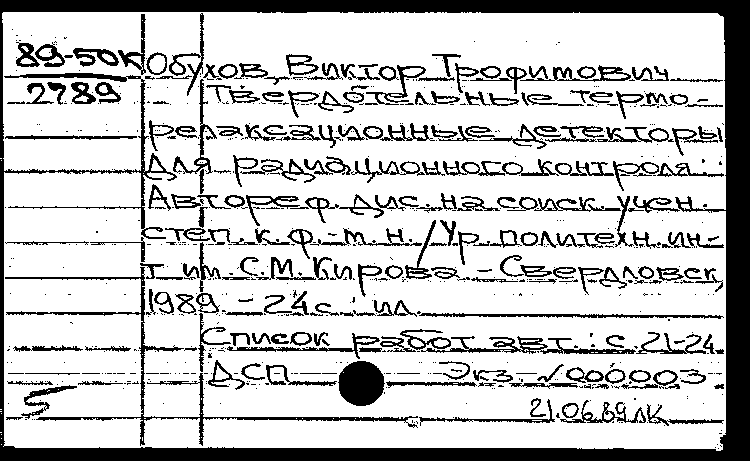 89-50К Обухов, Виктор Трофимович
2789 Твердотельные термо-
релаксационные детекторы
для радиационного контроля:
Автореф. дис. на соиск. учен.
степ. к. ф.-т. н. / Ур. политехн. ин-
т им. С.М. Кирова - Свердловск,
1989. - 24 с.: ил.
Список работ авт.: с. 21-24
ДСП Экз. №000003
5 21.06.89 ЛК